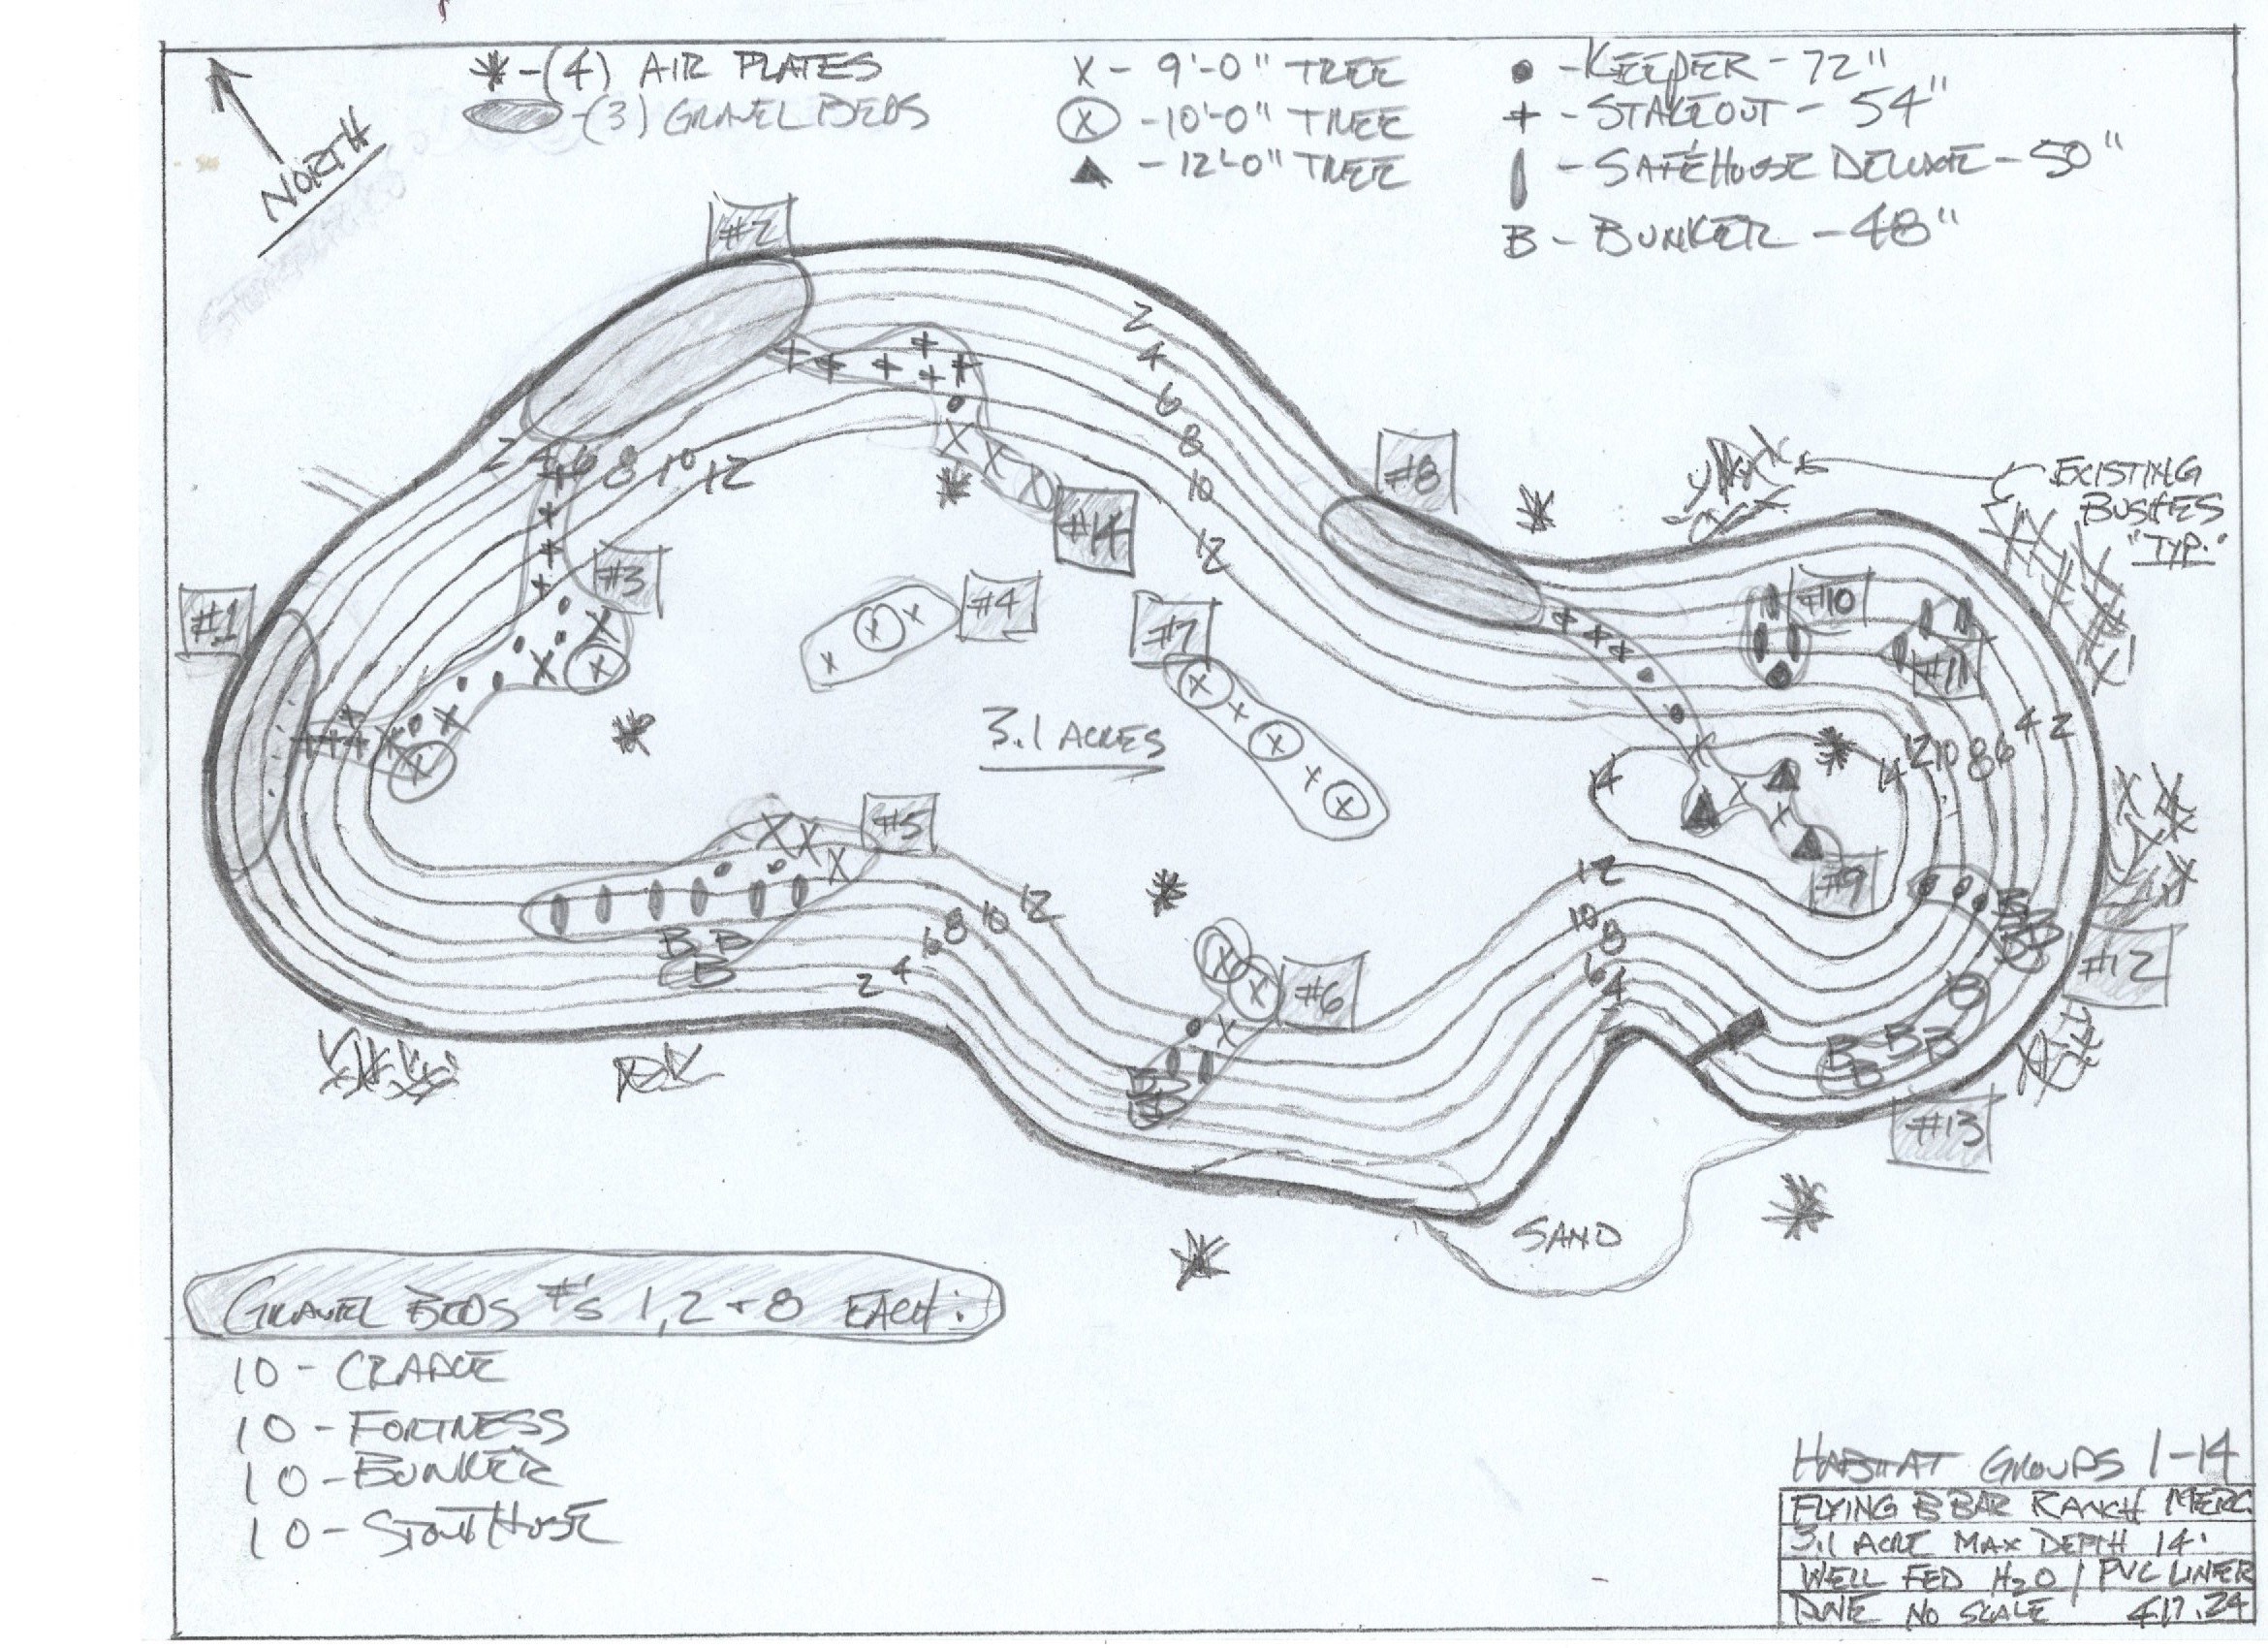 NORTH
* - (4) AIR PLATES
- (3) GRAVEL BEDS
X - 9'-0" TREE
Ⓧ - 10'-0" TREE
▲ - 12'-0" TREE
● - KEEPER - 72"
+ - STAKEOUT - 54"
- SAFEHOUSE DELUXE - 50"
B - BUNKER - 48"
#2
2
4
6
8
10
12
#8
EXISTING
BUSHES
"TYP."
2 4 6 8 10 12
#14
#1
#3
#4
#7
#10
#11
3.1 ACRES
14
14 12 10 8 6 4 2
#5
#9
B B
B
2 4 6 8 10 12
12
10
8
6
4
#12
#6
B
B B B
B B
#13
SAND
GRAVEL BEDS #'s 1, 2 + 8 EACH:
10 - CRADLE
10 - FORTRESS
10 - BUNKER
10 - STOUTHOUSE
HABITAT GROUPS 1-14
FLYING B BAR RANCH MERC
3.1 ACRE MAX DEPTH 14'
WELL FED H2O / PVC LINER
NO SCALE 4.17.24